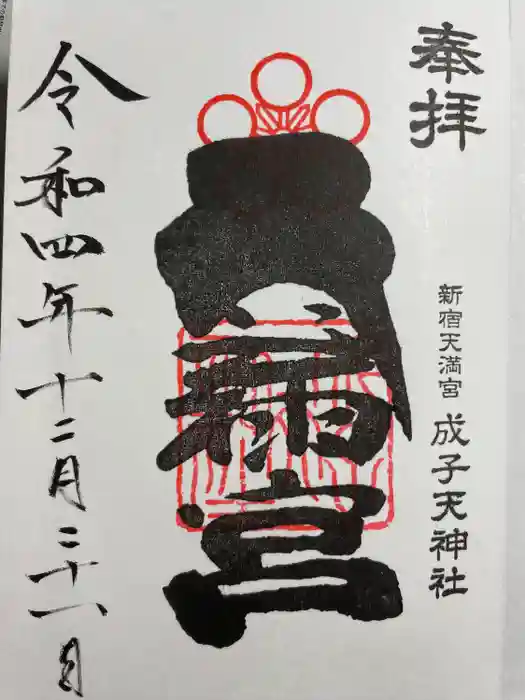 奉拝
新宿天満宮 成子天神社
天満宮
令和四年十二月二十一日